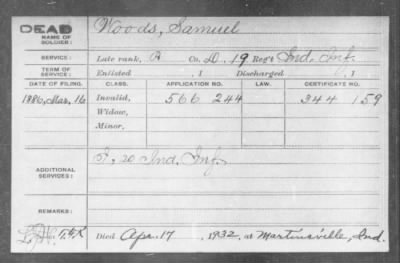 DEAD
NAME OF SOLDIER: Woods, Samuel
SERVICE: Late rank, Co. D. 19 Reg't Ind. Inf.
TERM OF SERVICE: Enlisted , 1 Discharged , 1
DATE OF FILING. CLASS. APPLICATION NO. LAW. CERTIFICATE NO.
1886, Mar, 16 Invalid, 566 244 344 159
Widow,
Minor,
ADDITIONAL SERVICES: 20 Ind. Inf.
REMARKS:
Died Apr. 17 , 1932, at Martinsville, Ind.